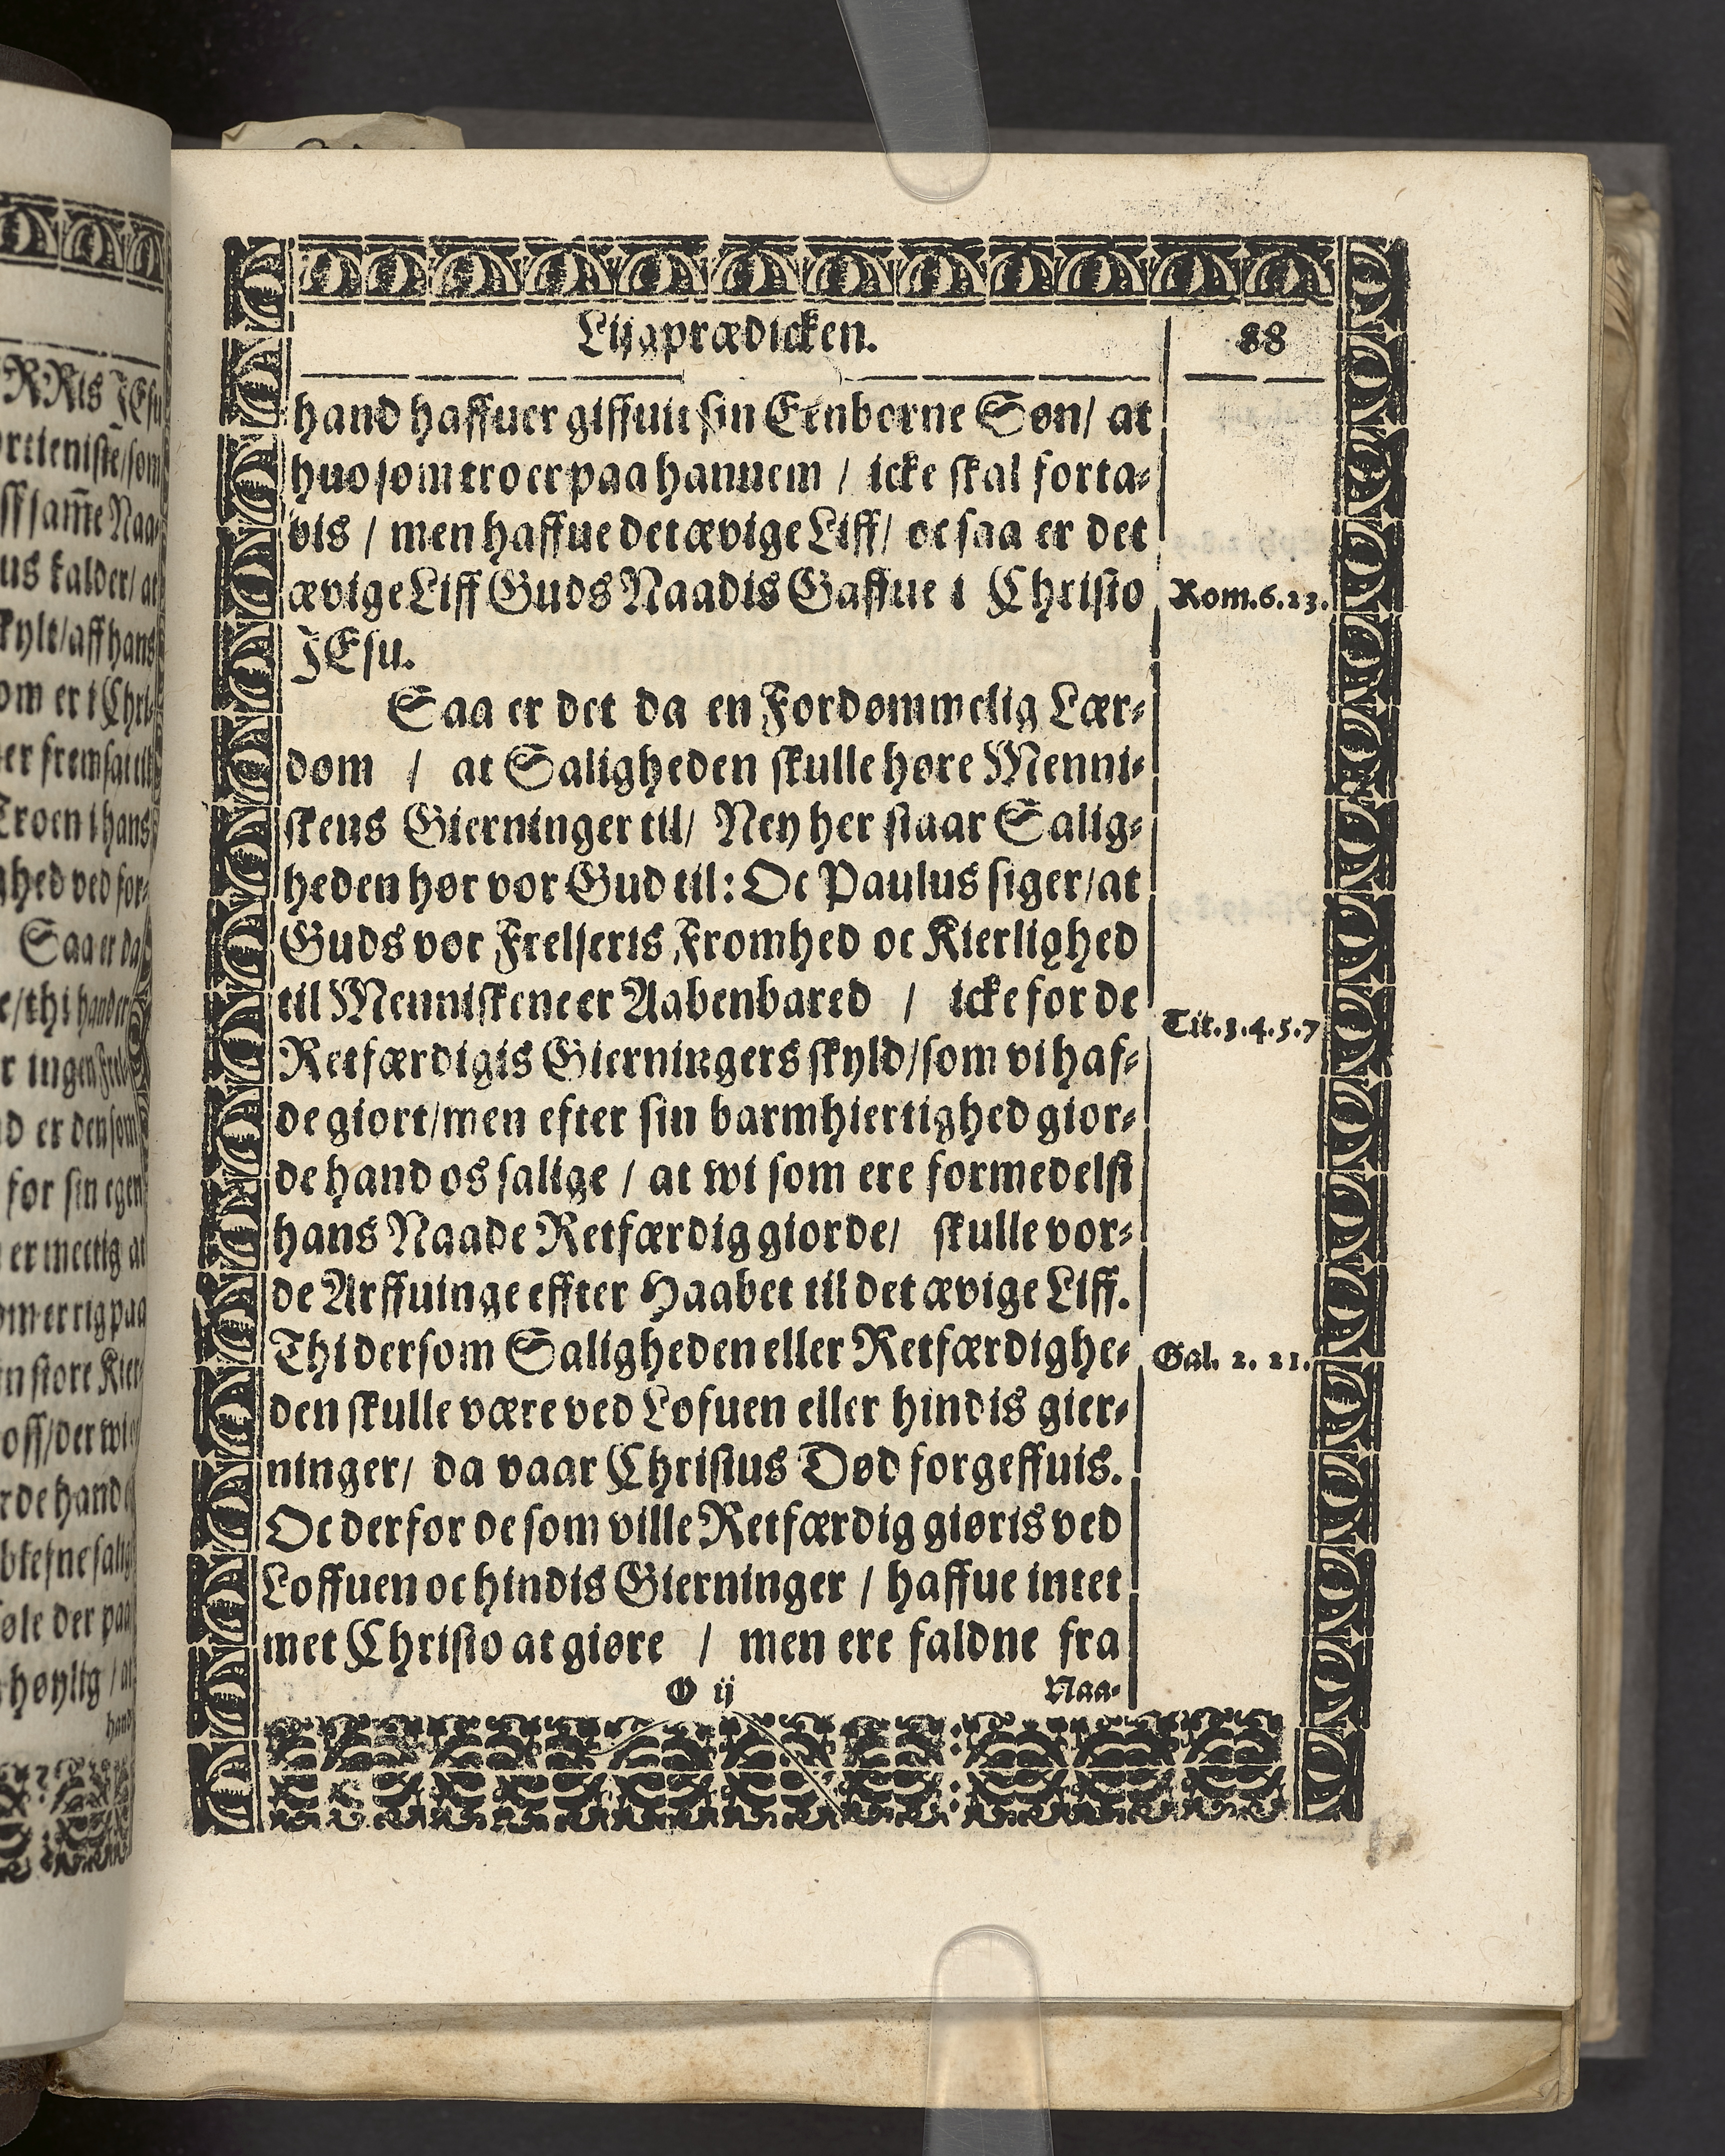 Lijgprædicken.
88
hand haffuer giffuit sin Eenborne Søn/ at
huo som troer paa hannem / icke skal forta⸗
vis / men haffue det ævige Liff/ oc saa er det
ævige Liff Guds Naadis Gaffue i Christo
Rom.6.23.
JEsu.
Saa er det da en Fordømmelig Lær⸗
dom / at Saligheden skulle høre Menni⸗
skens Gierninger til/ Ney her staar Salig⸗
heden hør vor Gud til: Oc Paulus siger/at
Guds vor Frelseris Fromhed oc Kierlighed
til Menniskene er Aabenbared / icke for de
Tit.3.4.5.7
Retfærdigis Gierningers skyld/som vi haf⸗
de giort/men efter sin barmhiertighed gior⸗
de hand os salige / at wi som ere formedelst
hans Naade Retfærdig giorde/ skulle vor⸗
de Arffuinge effter Haabet til det ævige Liff.
Thi dersom Saligheden eller Retfærdighe⸗
Gal. 2. 21.
den skulle være ved Lofuen eller hindis gier⸗
ninger/ da vaar Christus Død forgeffuis.
Oc derfor de som ville Retfærdig giøris ved
Loffuen oc hindis Gierninger / haffue intet
met Christo at giøre / men ere faldne fra
O ij
Naa⸗